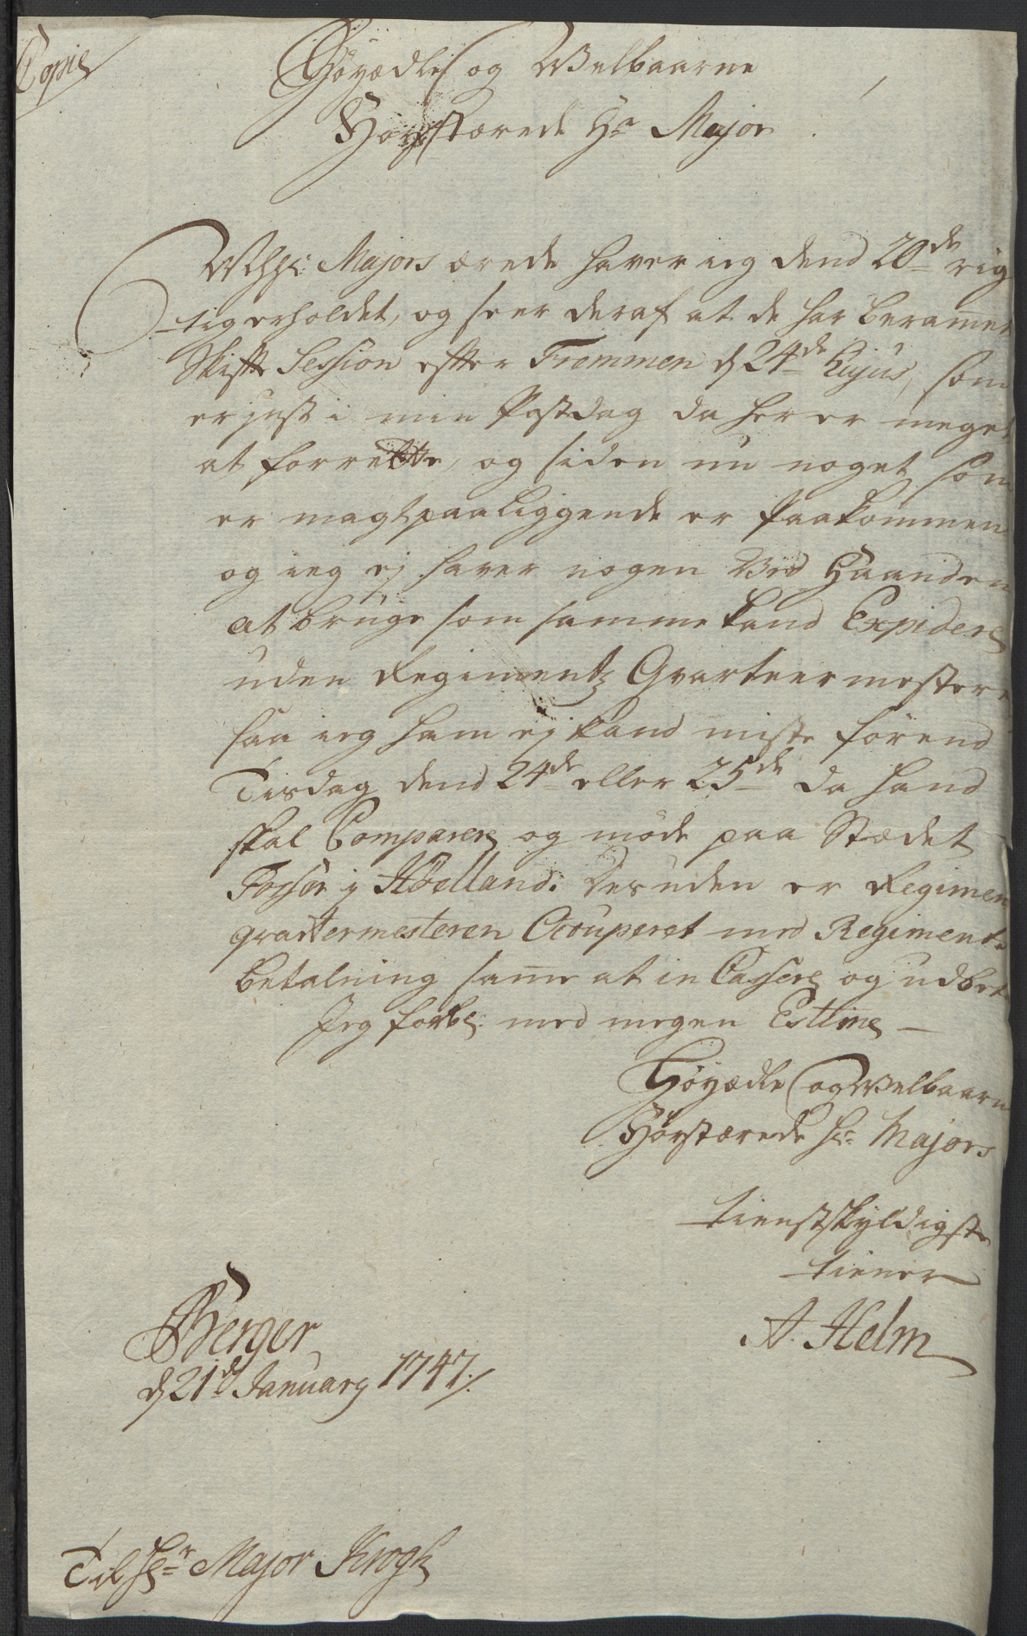 Copie
Høyædle og Welbaarne
Høystærede Hr Major
Velbr: Majors ærede haver ieg dend 20de rig
tig erholdet, og seer deraf at de har beramet
Skifte Session efter Tremmen d 24de Hujus, som
er just i min Postdag da her er meget
at forrette, og siden nu noget som
er magtpaaliggende er paakommen
og ieg ej haver nogen Ved Haanden
at bruge som samme kand Expidere
uden Regimentz Qvarteermestere
saa ieg ham ej kand miste førend
Tisdag dend 24de eller 25de da hand
skal Comparere og møde paa Stædet
Fossøe i Høelland. Desuden er Regimen
qvartermesteren Ocouperet med Regiments
betalning same at in Cassere og udbet
Jeg forbl: med megen Estime
Høyædle og Welbaarn
Høystærede Hr Majors
tienstskyldigste
tiener
A. Helm
Berger
d 21de January 1747.
Til Hr Major Krogh